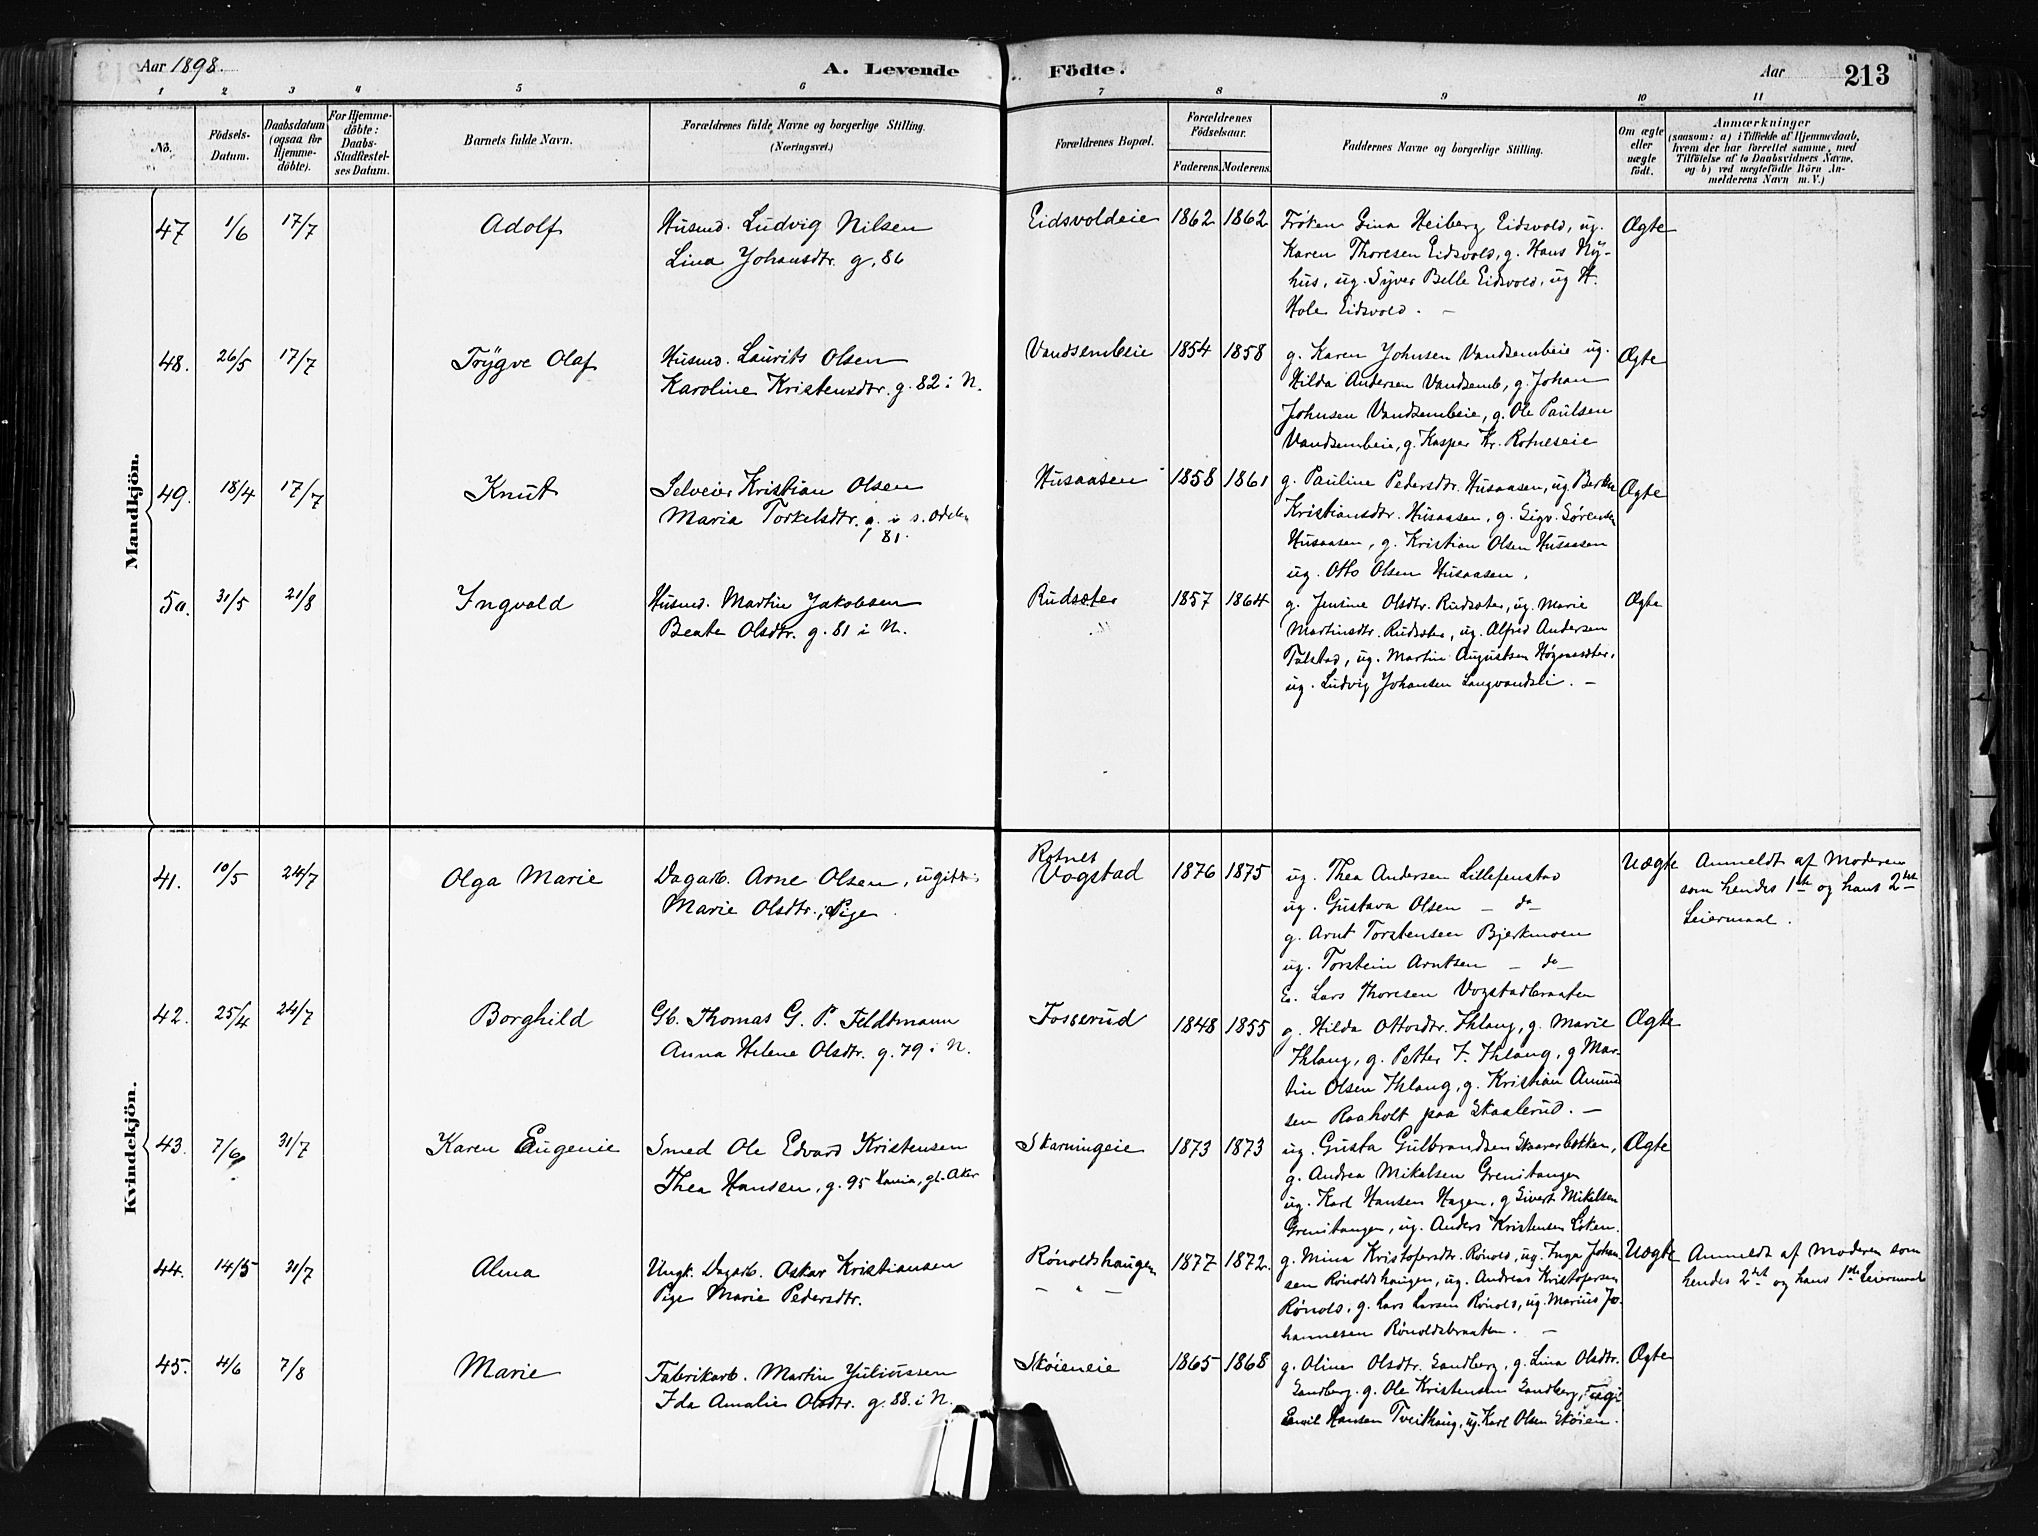 Aar 1898. A. Levende Födte. Aar 213
1 2 3 4 5 6 7 8 9 10 11
No.
Födsels-
Datum.
Daabsdatum
(ogsaa for
Hjemme-
döbte).
For Hjemme-
döbte:
Daabs-
Stadfæstel-
ses Datum.
Barnets fulde Navn.
Forældrenes fulde Navne og borgerlige Stilling.
(Næringsvei.)
Forældrenes Bopæl.
Forældrenes
Födselsaar.
Faderens. Moderens.
Faddernes Navne og borgerlige Stilling.
Om ægte
eller
uægte
født.
Anmærkninger
(saasom: a) i Tilfælde af Hjemmedaab,
hvem der har forrettet samme, med
Tilföielse af to Daabsvidners Navne,
og b) ved uægtefödte Börn An-
melderens Navn m. V.)
Mandkjön.
47 1/6 17/7 Adolf
Husmd. Ludvig Nilsen
Lina Johansdtr. g. 86
Eidsvoldeie 1862 1862
Fröken Gina Heiberg Eidsvold, ug.
Karen Thoresen Eidsvold, g. Hans Ny-
hus, ug. Syver Belle Eidsvold, ug H.
Hole Eidsvold. –
Ægte
48. 26/5 17/7 Trygve Olaf
Husmd. Laurits Olsen
Karoline Kristensdtr. g. 82 i N.
Vandsembeie 1854 1858
g. Karen Johnsen Vandsembeie ug.
Hilda Andersen Vandsemb, g. Johan
Johnsen Vandsembeie, g. Ole Paulsen
Vandsembeie, g. Kasper Kr. Rotneseie
Ægte
49. 18/4 17/7 Knut
Selveier Kristian Olsen
Maria Torkelsdtr. g. i s. Odalen
81.
Husaasen 1858 1861
g. Pauline Pedersdtr. Husaasen, ug.
Kristiansdtr. Husaasen, g. Sigv. Sørensen
Husaasen, g. Kristian Olsen Husaasen
ug. Otto Olsen Husaasen.
Ægte
50. 31/5 21/8 Ingvald
Husmd. Martin Jakobsen
Beate Olsdtr. g. 81 i N.
Rudsæter 1857 1864
g. Jensine Olsdtr. Rudsæter, ug. Marie
Martinsdtr. Rudsæter, ug. Alfred Andersen
Tulstad, ug. Martin Augustsen
ug. Ludvig Johansen Langvandsli. –
Ægte
Kvindekjön.
41. 10/5 24/7 Olga Marie
Dagarb. Arne Olsen, ugift
Marie Olsdtr., Pige
Rotnes
Vogstad 1876 1875
ug. Thea Andersen Lillefenstad
ug. Gustava Olsen – do
g. Arnt Torstensen Bjerkmoen
ug. Torstein Arntsen – do –
E. Lars Thoresen Vogstadbraaten
Uægte
Anmeldt af Moderen
som hendes 1ste og hans 2det
Leiermaal.
42. 25/4 24/7 Borghild
Gb. Thomas G. P. Feldtmann
Anna Helene Olsdtr. g. 79 i N.
Fosserud 1848 1855
g. Hilda Ottosdtr. Ihlang, g. Marie
Ihlang, g. Petter F. Ihlang, g Mar-
tin Olsen Ihlang, g. Kristian Amund
sen Raaholt paa Skaalerud. –
Ægte
43. 7/6 31/7 Karen Eugenie
Smed Ole Edvard Kristensen
Thea Hansen, g. 95 Xania, gl. Aker
Skarningeie 1873 1873
ug. Gusta Gulbrandsen Skaarerbakken,
g. Andrea Mikalsen Grenitangen
ug. Karl Hansen Hagen, g Sivert Mikelsen
Grenitangen, ug. Anders Kristensen Löken.
Ægte
44. 14/5 31/7 Alma
Ungk. Dagarb. Oskar Kristiansen
Pige Marie Pedersdtr.
Rönoldshaugen 1877 1872.
– " –
g. Mina Kristofersdtr. Rönold, ug. Inga Johan
sen Rönoldshaugen, ug. Andreas Kristofersen
Rönold, g. Lars Larsen Rönold, ug. Marius Jo-
hannesen Rönoldsbraaten. –
Uægte
Anmeldt af Moderen som
hendes 2det og hans 1ste Leiermaal
45. 4/6 7/8 Marie
Fabrikarb. Martin Juliussen
Ida Amalie Olsdtr. g. 88. i N.
Skøieneie 1865 1868
g. Oline Olsdtr. Sandberg, g. Lina Olsdtr.
Sandberg. g. Ole Kristensen Sandberg,
Emil Hansen Tveithaug, ug. Karl Olsen Skøien.
Ægte